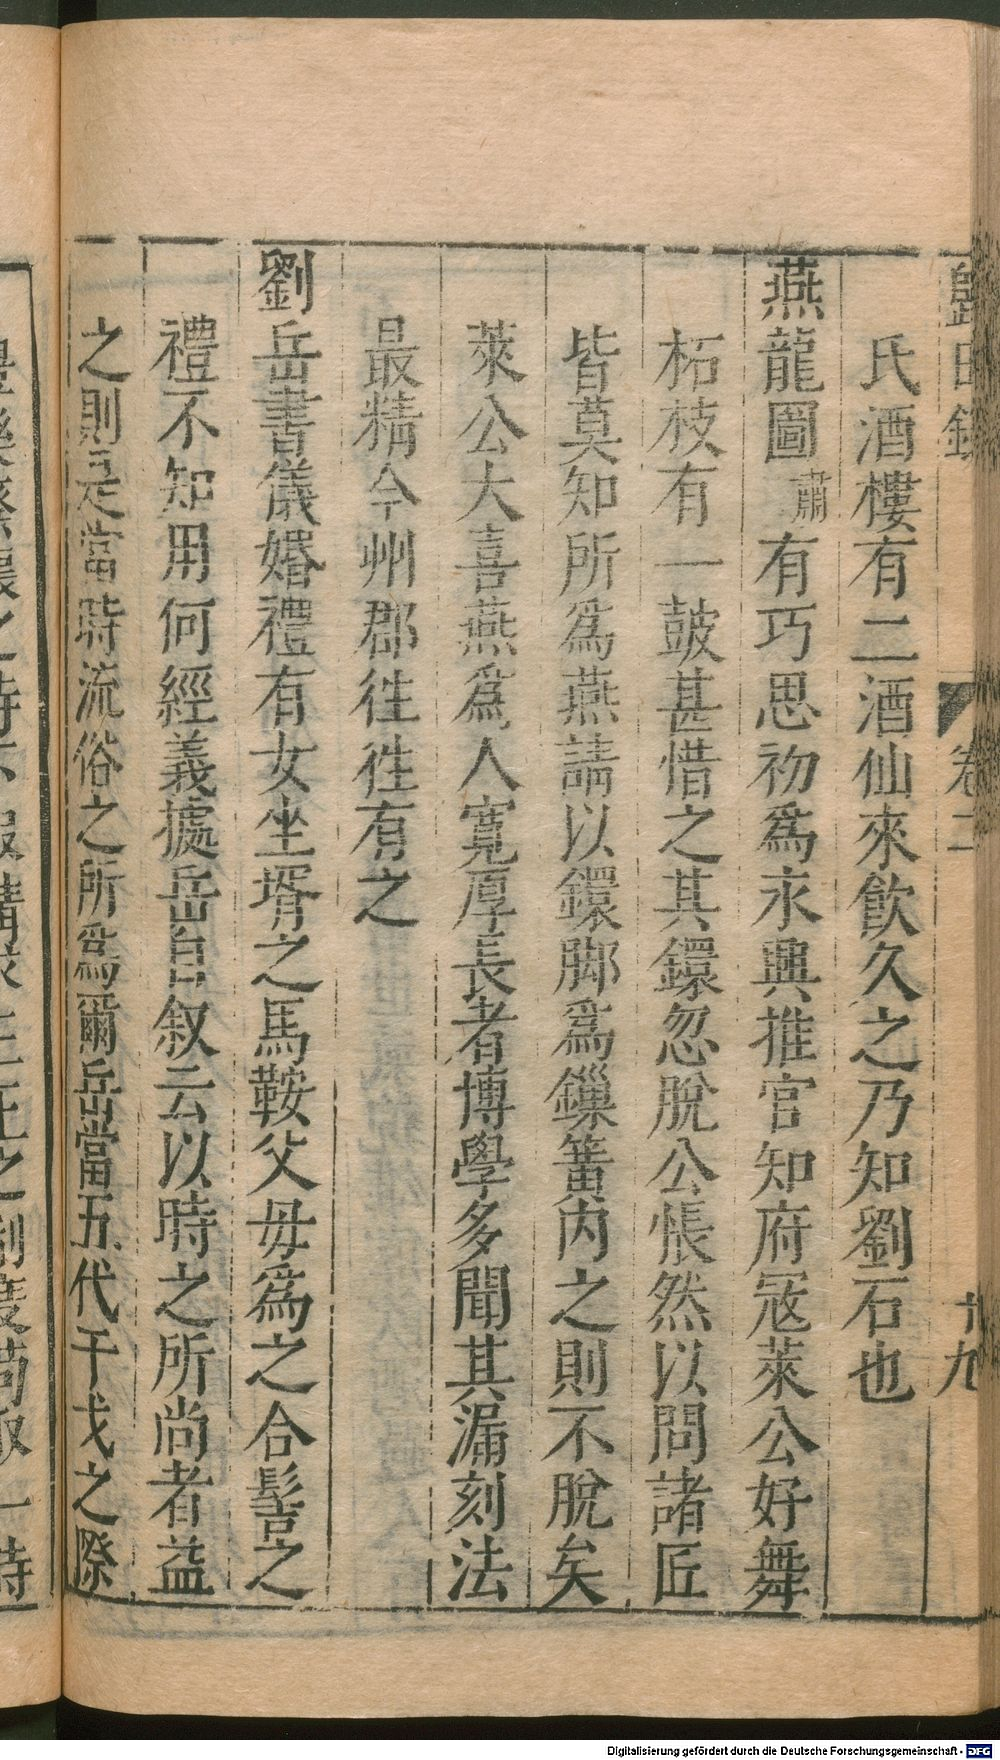 歸田錄 卷二 十九
氏酒樓有二酒仙來飲久之乃知劉石也
燕龍圖肅有巧思初爲永興推官知府冦萊公好舞
柘枝有一皷甚惜之其鐶忽脫公悵然以問諸匠
皆莫知所爲燕請以鐶脚爲鏁簧内之則不脫矣
萊公大喜燕爲人寛厚長者博學多聞其漏刻法
最精今州郡徃徃有之
劉岳書儀婚禮有女坐壻之馬鞍父母爲之合髻之
禮不知用何經義據岳自叙云以時之所尚者益
之則是當時流俗之所爲爾岳當五代干戈之際
Digitalisierung gefördert durch die Deutsche Forschungsgemeinschaft - DFG